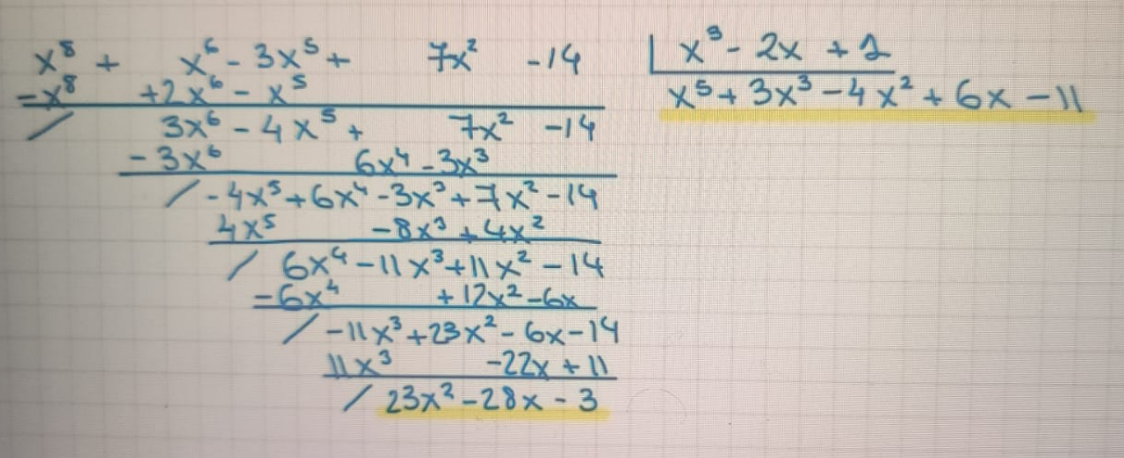 x⁸ + x⁶ - 3x⁵ + 7x² - 14 | x³ - 2x + 1
-x⁸ +2x⁶ - x⁵ x⁵ + 3x³ - 4x² + 6x - 11
/ 3x⁶ - 4x⁵ + 7x² - 14
- 3x⁶ 6x⁴ - 3x³
/ - 4x⁵ + 6x⁴ - 3x³ + 7x² - 14
4x⁵ - 8x³ + 4x²
/ 6x⁴ - 11x³ + 11x² - 14
- 6x⁴ + 12x² - 6x
/ - 11x³ + 23x² - 6x - 14
11x³ - 22x + 11
/ 23x² - 28x - 3